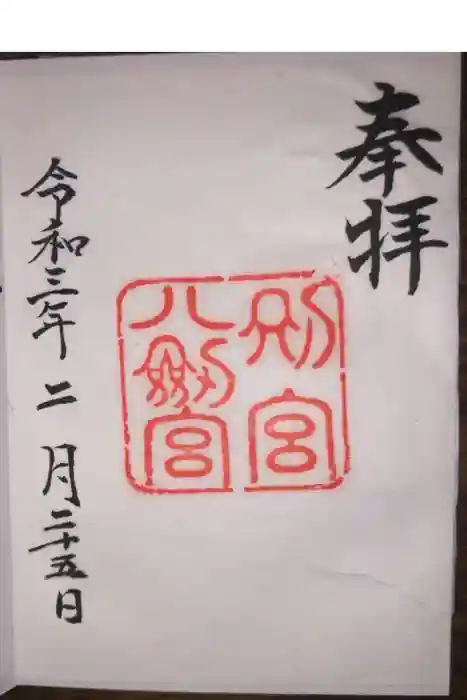 奉拝
別宮
八剱宮
令和三年二月二十五日